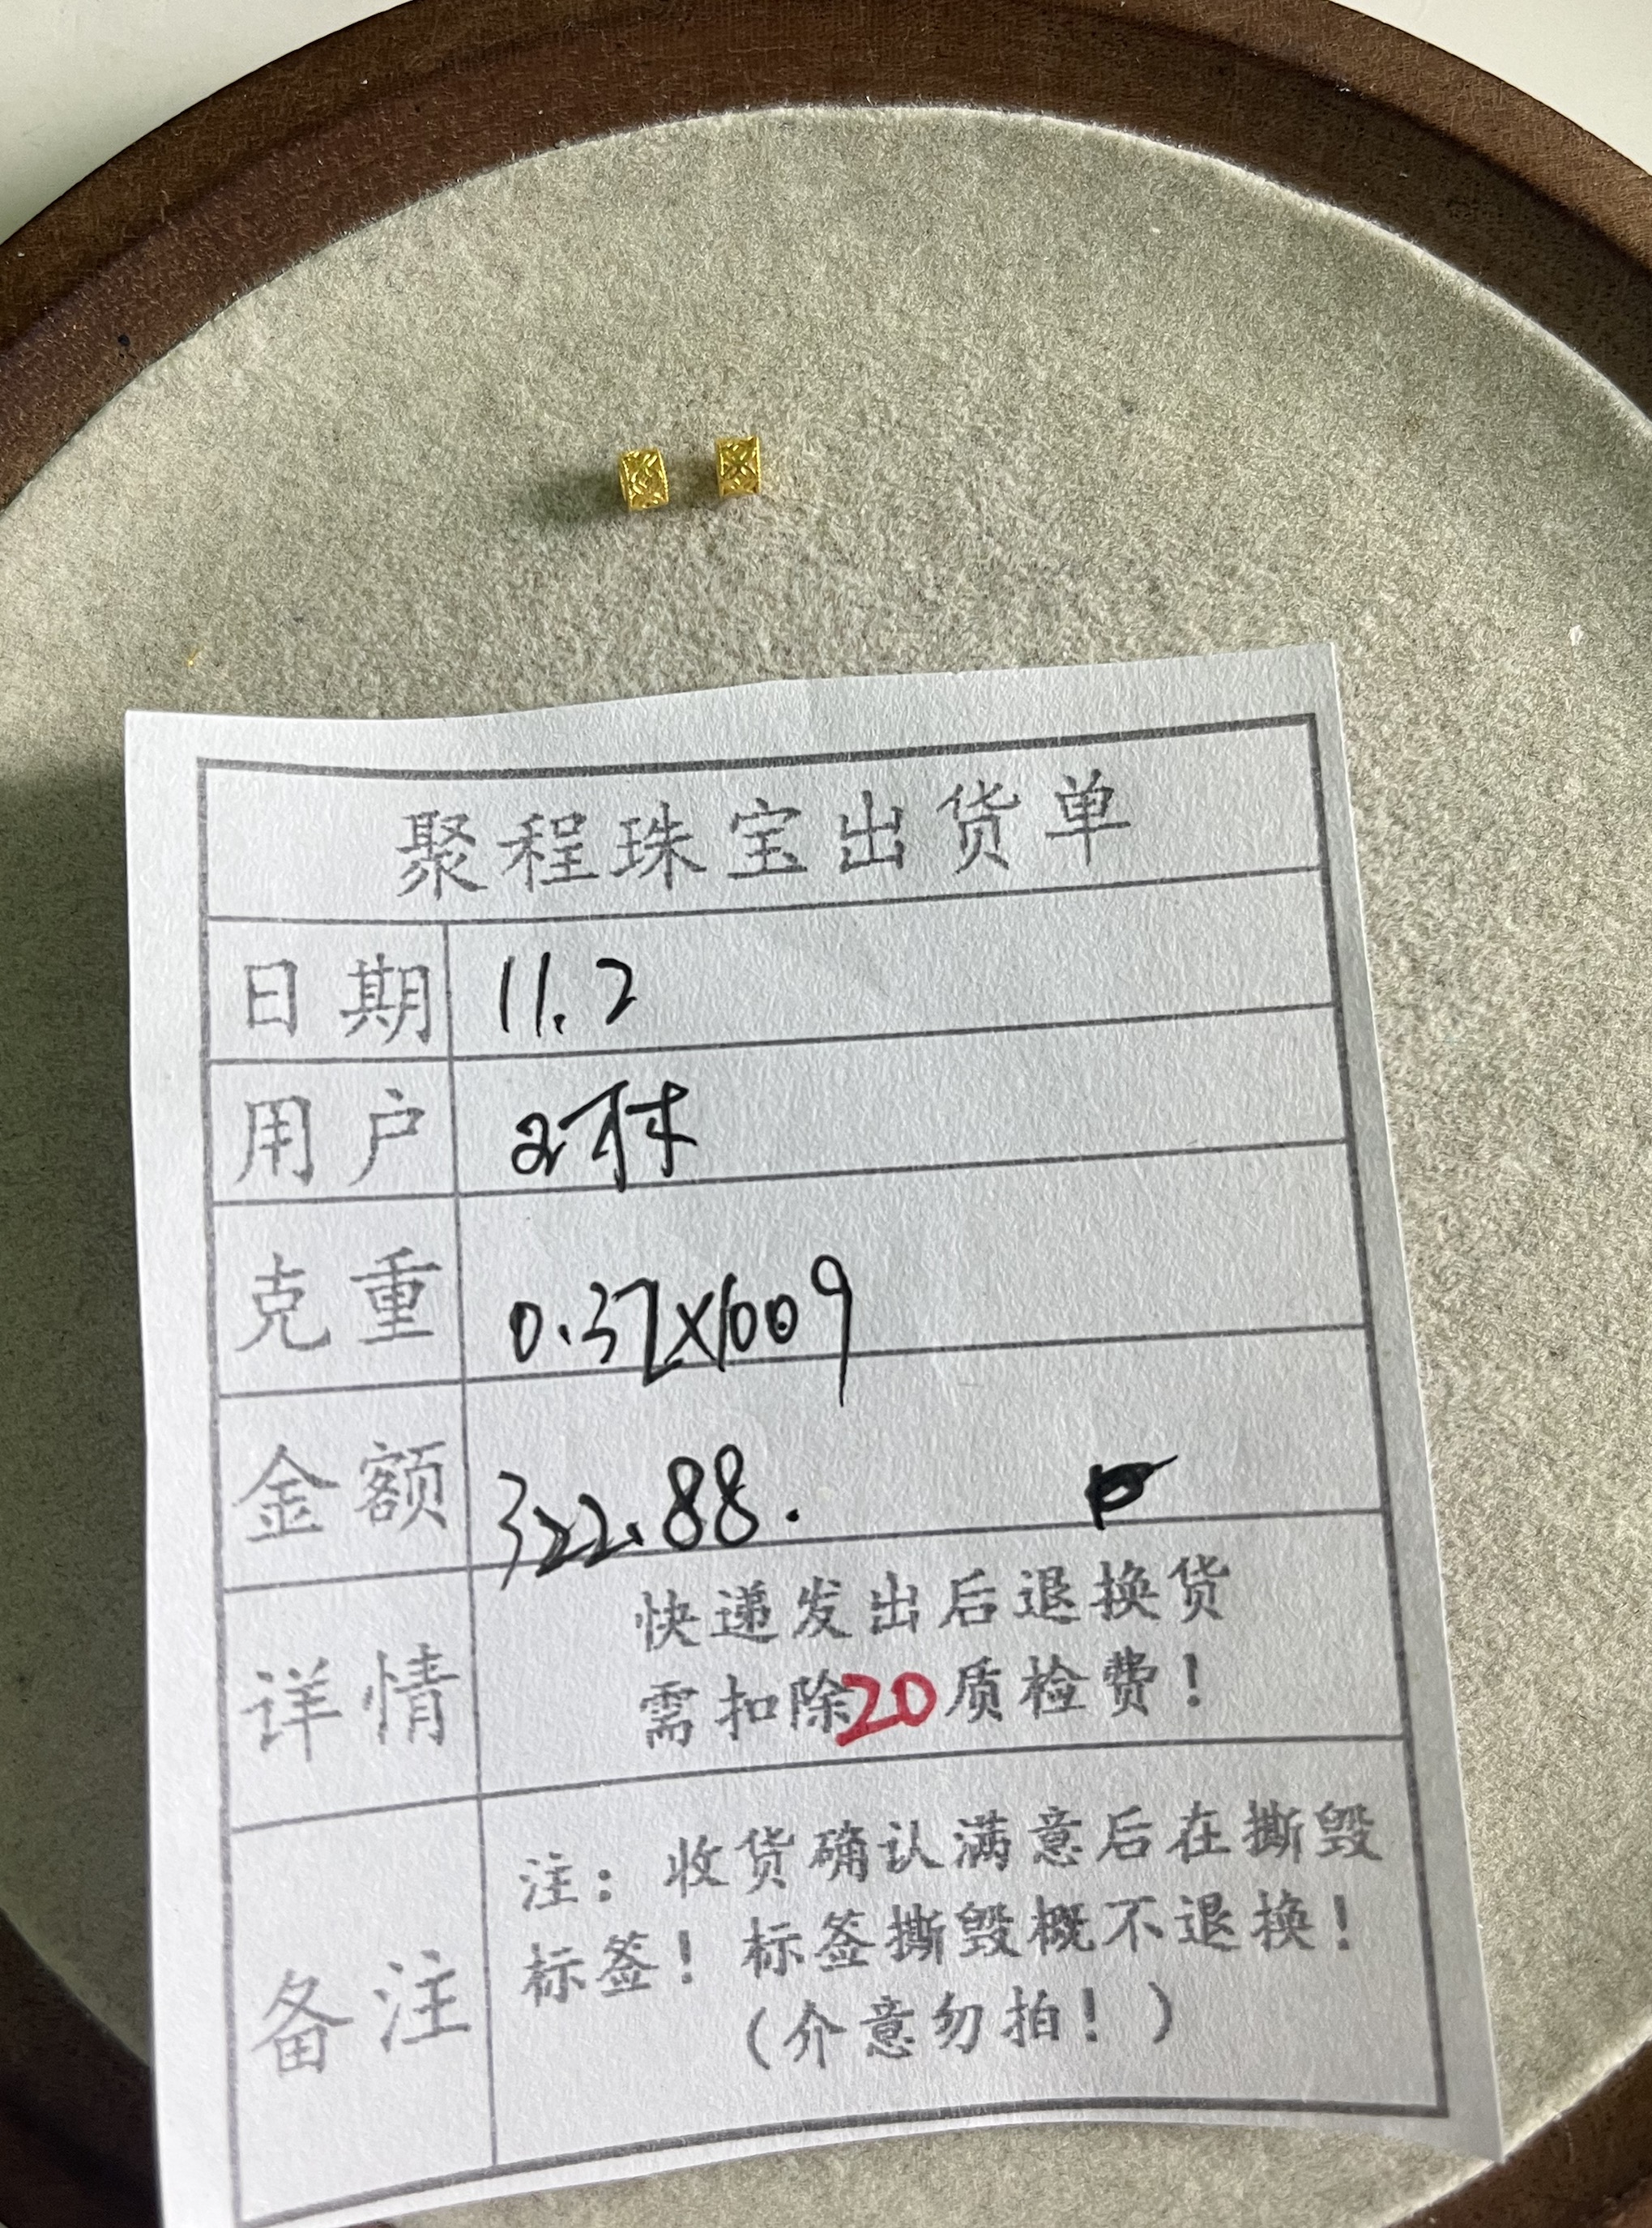 聚程珠宝出货单
日期 11.2
用户
克重 0.32x1009
金额 322.88.
详情 快递发出后退换货
需扣除20质检费！
备注 注：收货确认满意后在撕毁
标签！标签撕毁概不退换！
（介意勿拍！）